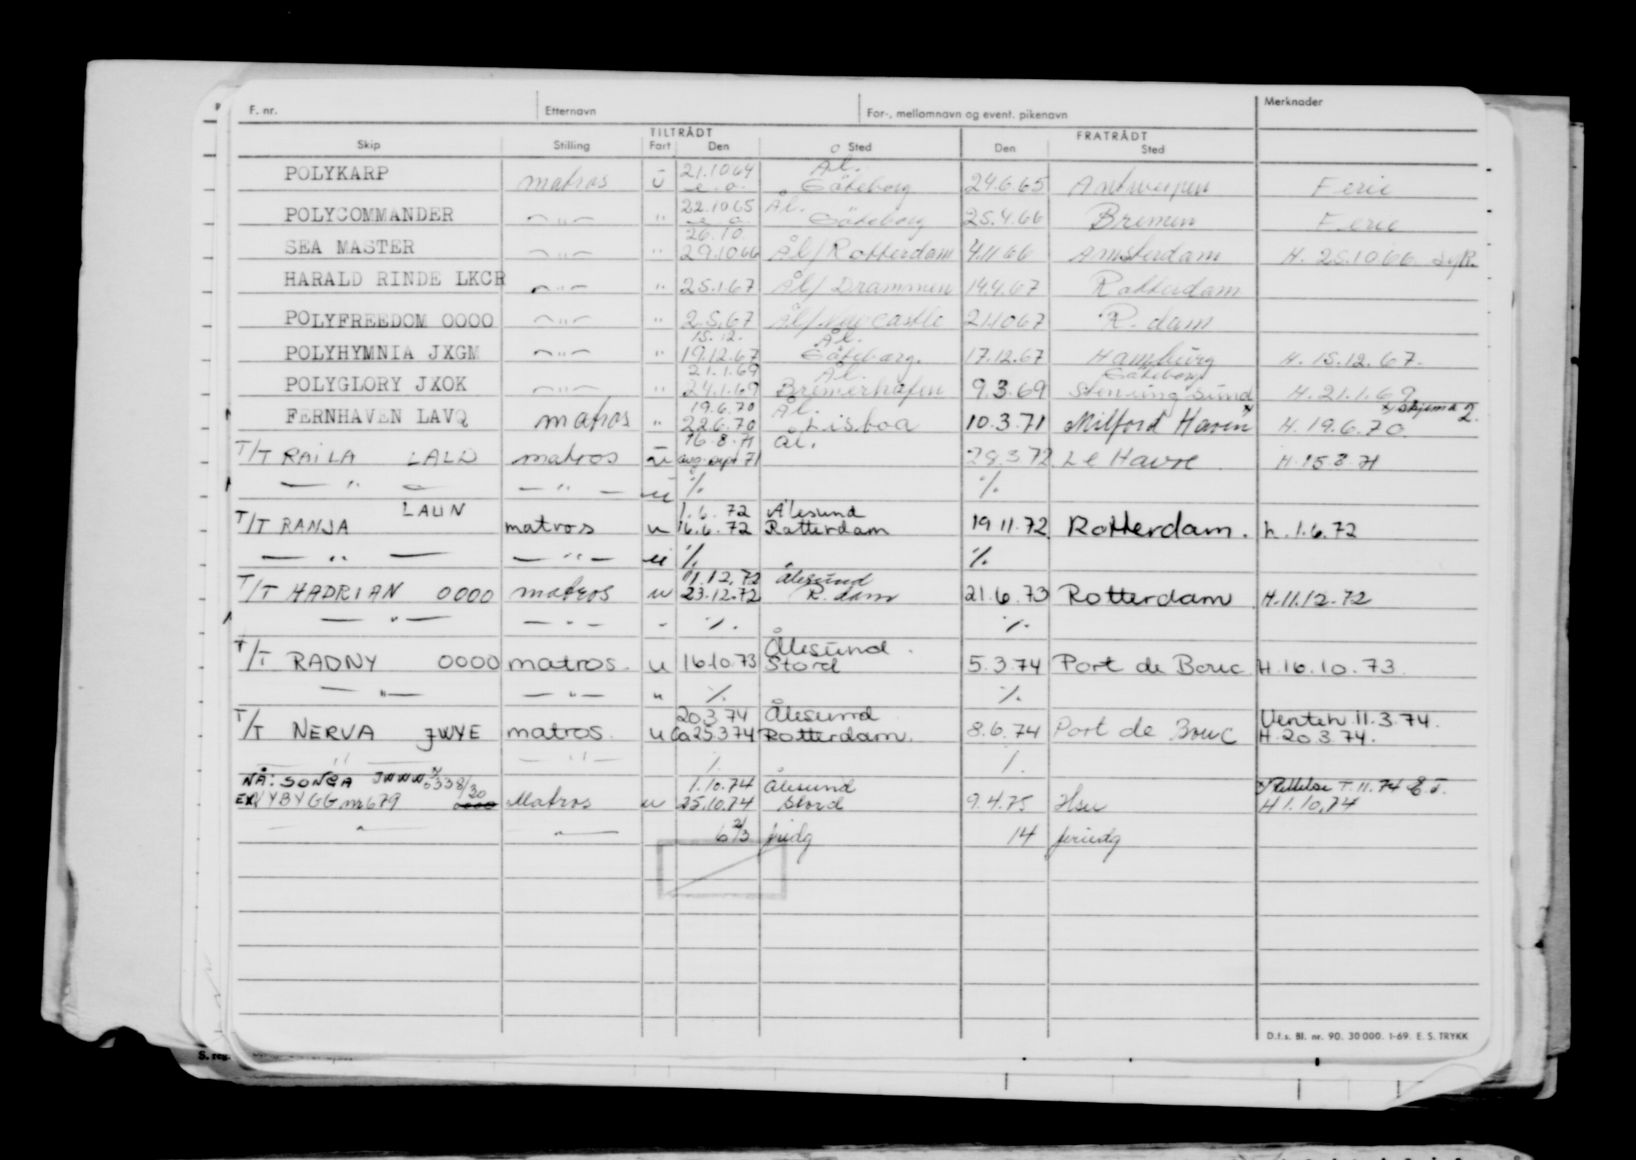 F. nr. Etternavn For-, mellomnavn og event. pikenavn Merknader
TILTRÅDT FRATRÅDT
Skip Stilling Fart Den Sted Den Sted
21.10 64 Ål.
POLYKARP matros u Göteborg 24.6.65 Antwerpen Ferie
22.10 65 Ål.
POLYCOMMANDER — " — " Göteborg 25.4.66 Bremen Ferie
26.10.
SEA MASTER — " — " 29.10 66 Ål/Rotterdam 4.11 66 Amsterdam H. 25.10 66
HARALD RINDE LKCR — " — " 25.1.67 Ål/ Drammen 14.4.67 Rotterdam
POLYFREEDOM 0000 — " — " 2.5.67 Ål/ 21.10 67 R. dam
15.12. Ål.
POLYHYMNIA JXGM — " — " 19.12.67 Göteborg. 17.12.67 Hamburg H. 15.12.67.
21.1.69 Ål. Göteborg
POLYGLORY JXOK — " — " 24.1.69 Bremerhafen 9.3.69 Stenungsund H. 21.1.69
19.6.70 Ål. x/ skjema 2.
FERNHAVEN LAVQ matros " 22.6.70 Lisboa 10.3.71 Milford Haven x H. 19.6.70.
16.8.71 ål.
T/T RAILA LALD matros u aug. sept 71 28.3 72 Le Havre H. 15 8 71
— " — — " — u % %
LAUN 1.6.72 Ålesund
T/T RANJA matros u 16.6.72 Rotterdam 19 11.72 Rotterdam. h. 1.6.72
— " — — " — u % %
11.12.72 Ålesund
T/T HADRIAN 0000 matros u 23.12.72 R. dam 21.6.73 Rotterdam H. 11.12.72
— " — — " — " %. %.
Ålesund.
T/T RADNY 0000 matros. u 16.10.73 Stord 5.3.74 Port de Bouc H. 16.10.73.
— " — — " — " %. %.
20.3 74 Ålesund Venteh. 11.3.74.
T/T NERVA JWYE matros. u Ca 25.3 74 Rotterdam. 8.6.74 Port de Bouc H. 20.3.74.
— " — — " —
NÅ: SONGA 1.10.74 Ålesund x/ Rettelse T. 11.74
EX NYBYGG nr 679 Matros u 25.10.74 Stord 9.4.75 H 1.10.74
— " — — " — 6 2/3 14 feriedg
D.f.s. Bl. nr. 90. 30 000. 1-69. E. S. TRYKK
S. reg.